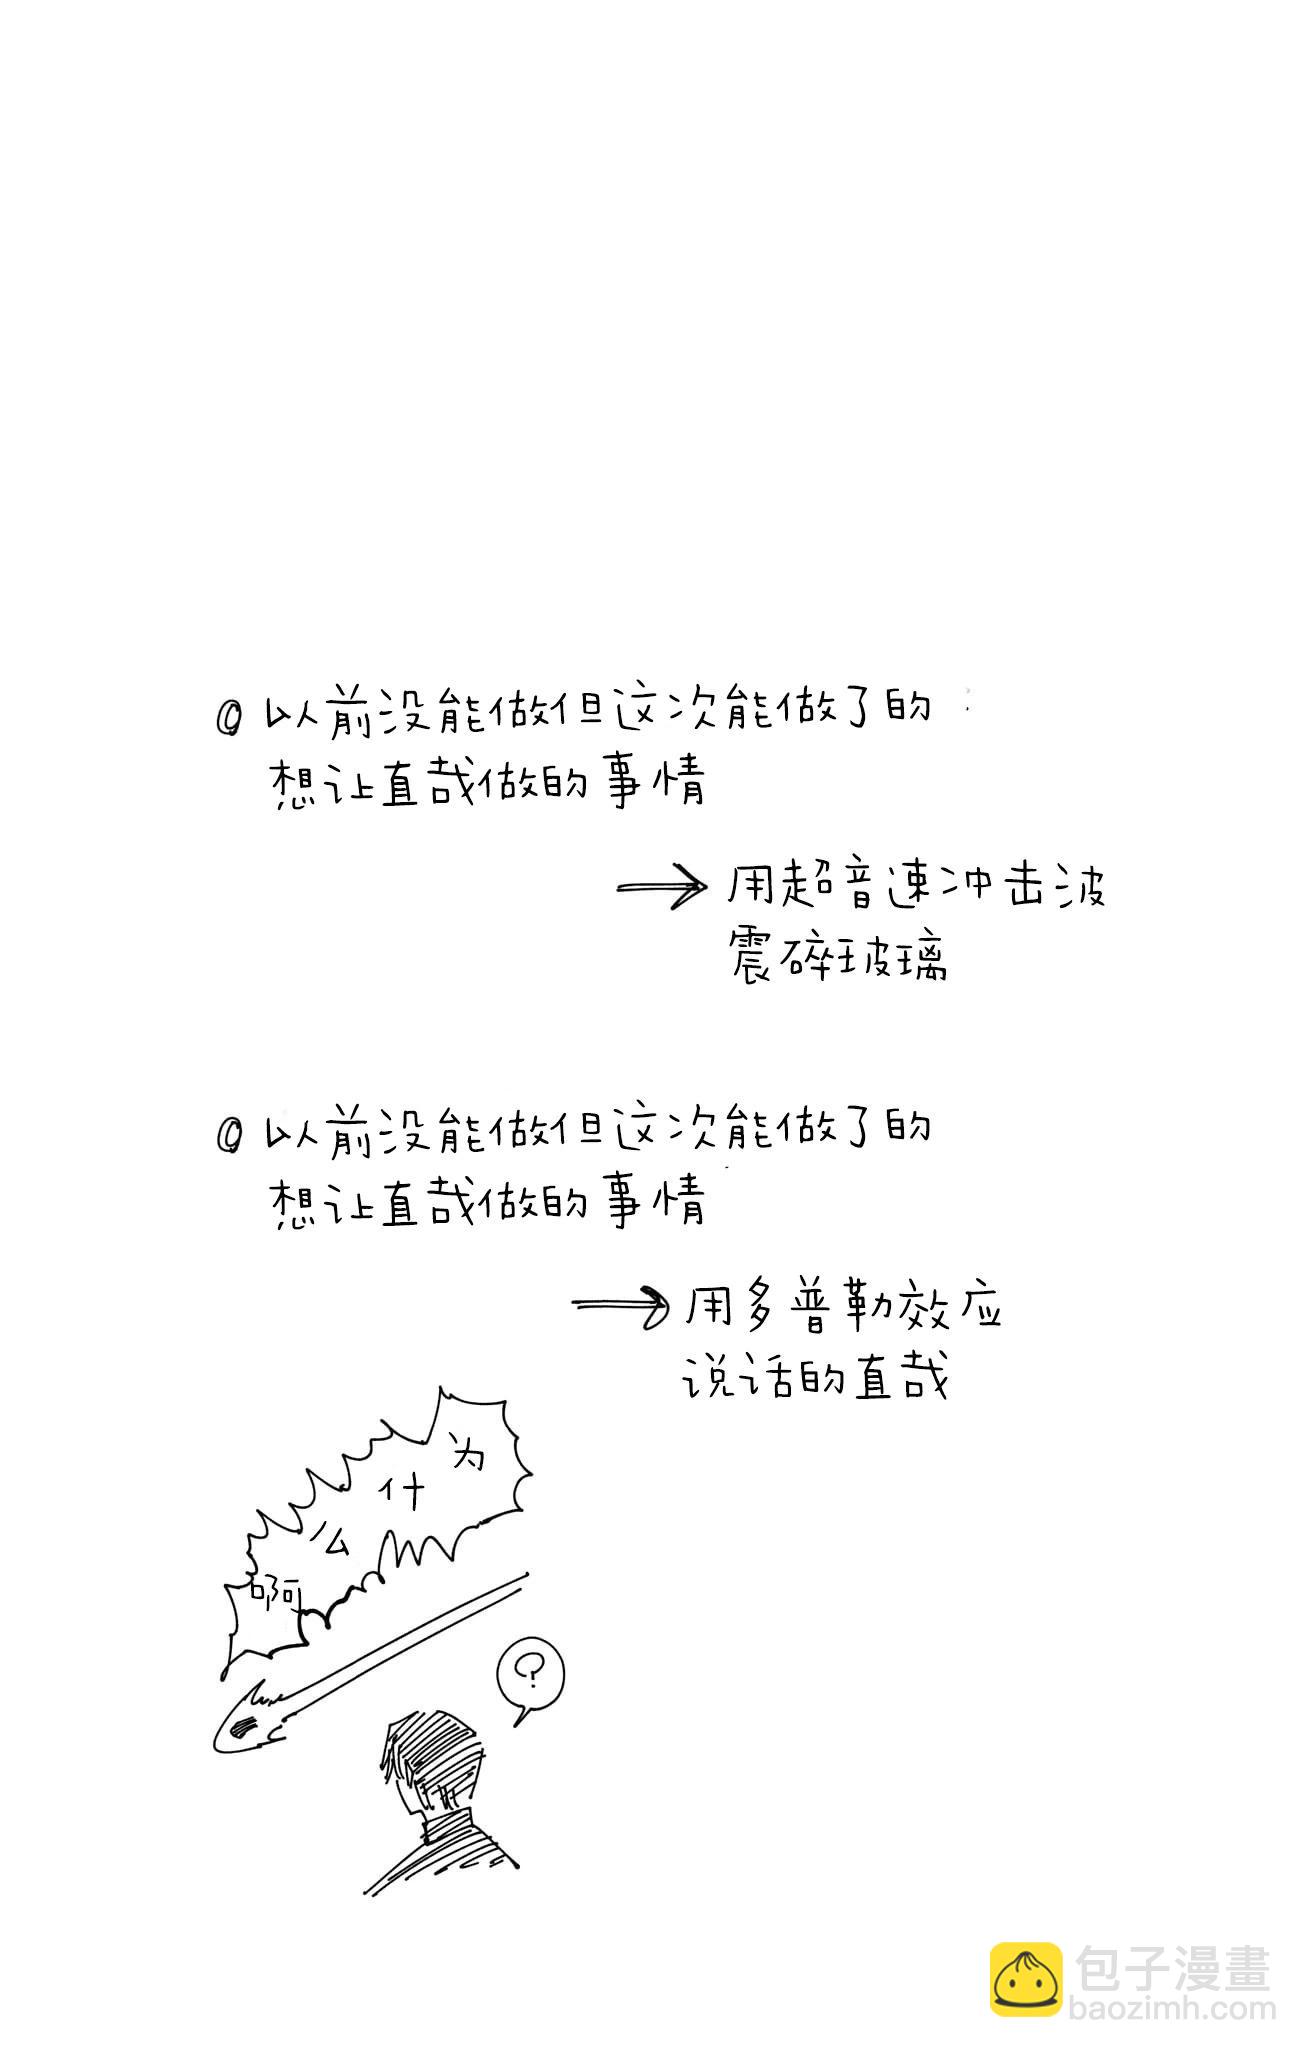 以前没能做但这次能做了的
想让直哉做的事情
用超音速冲击波
震碎玻璃
以前没能做但这次能做了的
想让直哉做的事情
用多普勒效应
说话的直哉
为
什
么
啊
?
包子漫畫
baozimh.com